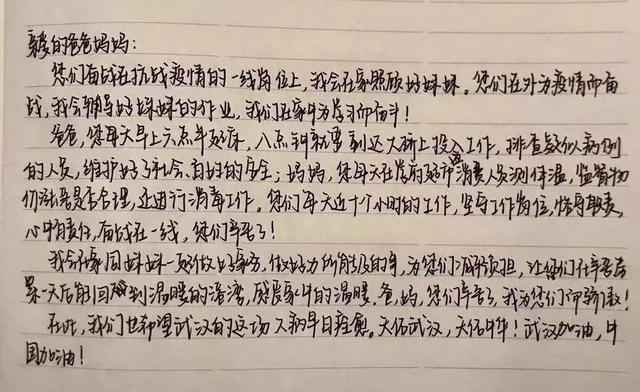 亲爱的爸爸妈妈:
您们奋战在抗战疫情的一线岗位上,我会在家照顾好妹妹。您们在外为疫情而奋
战,我会辅导好妹妹的作业,我们在家中为学习而奋斗!
爸爸,您每天早上六点半起床,八点到大桥上投入工作,排查疑似病例
的人员,维护好了社会、自的安全;妈妈,您每天在超市消费人员测体温,监督物
价涨是否合理,还进行消毒工作。您们每天近十个小时的工作,坚守工作岗位,恪尽职责,
心中有责任,奋战在一线,您们辛苦了!
我会在家同妹妹一起做好家务,做好力所能及的事,为您们减轻负担,让您们在辛苦劳
累一天后能回到温暖的港湾,感受家中的温暖。爸,妈,您们辛苦了,我为您们而骄傲!
在此,我们也希望武汉的这场病早日痊愈。天佑武汉,天佑中华!武汉加油,中
国加油!